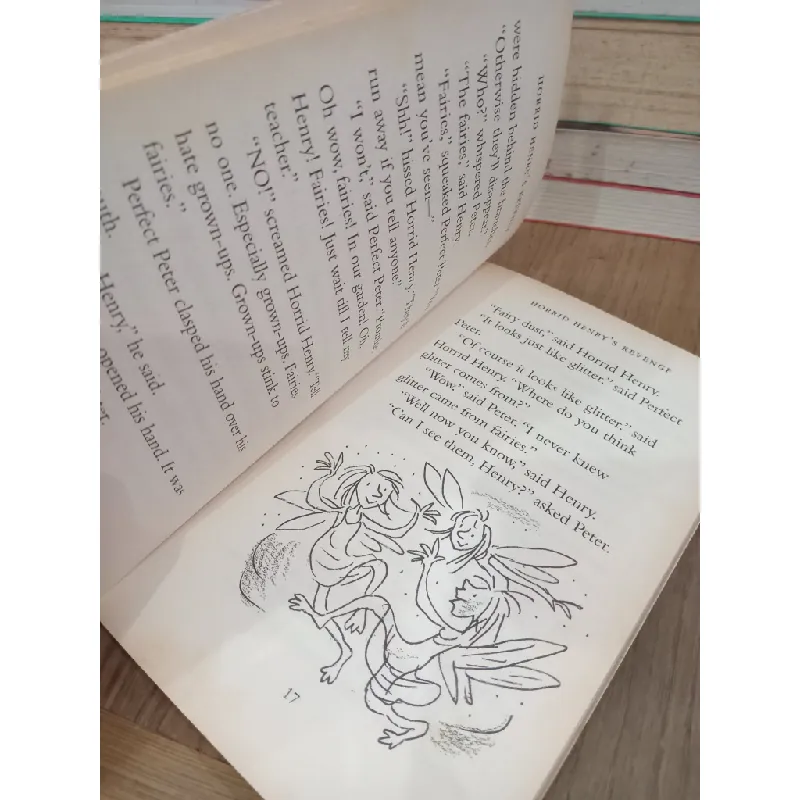 HORRID HENRY'S REVENGE
were hidden behind the
"Otherwise they'll disappear."
"Who?" whispered Peter.
"The fairies," said Henry
"Fairies," squeaked Perfect
mean you've seen—"
"Shh!" hissed Horrid Henry.
run away if you tell anyone."
"I won't," said Perfect Peter.
Oh wow, fairies! In our garden! Oh,
Henry! Fairies! Just wait till I tell my
teacher."
"NO!" screamed Horrid Henry. "Tell
no one. Especially grown-ups. Fairies
hate grown-ups. Grown-ups stink to
fairies."
Perfect Peter clasped his hand over his
Henry," he said.
opened his hand. It was
HORRID HENRY'S REVENGE
"Fairy dust," said Horrid Henry.
"It looks just like glitter," said Perfect
Peter.
"Of course it looks like glitter," said
Horrid Henry. "Where do you think
glitter comes from?"
"Wow," said Peter. "I never knew
glitter came from fairies."
"Well now you know," said Henry.
"Can I see them, Henry?" asked Peter.
17